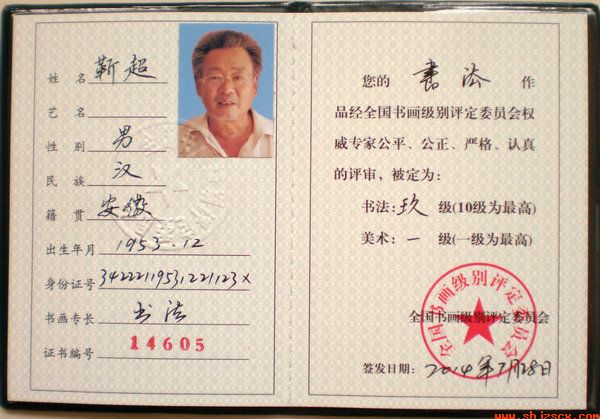 姓名 靳超
艺名
性别 男
民族 汉
籍贯 安徽
出生年月 1953.12
身份证号 34222119531221123X
书画专长 书法
证书编号 14605
您的 書法 作
品经全国书画级别评定委员会权
威专家公平、公正、严格、认真
的评审，被定为：
书法：玖 级(10级为最高)
美术：一 级(一级为最高)
全国书画级别评定委员会
全国书画级别评定委员会
签发日期：2014年7月28日
www.shjzscx.com